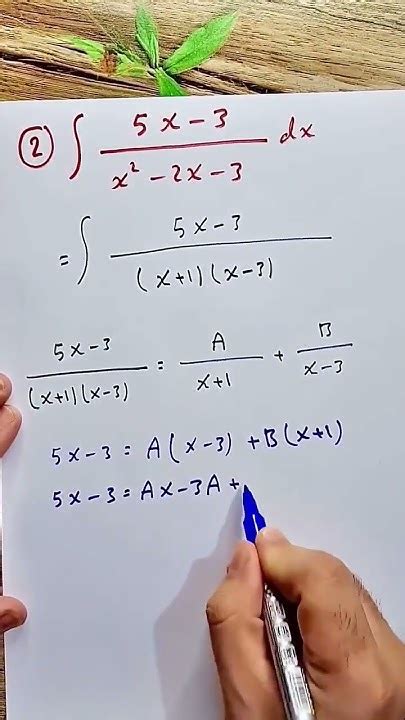 ② ∫ (5x-3)/(x²-2x-3) dx
= ∫ (5x-3)/((x+1)(x-3))
(5x-3)/((x+1)(x-3)) = A/(x+1) + B/(x-3)
5x-3 = A(x-3) + B(x+1)
5x-3 = Ax-3A +